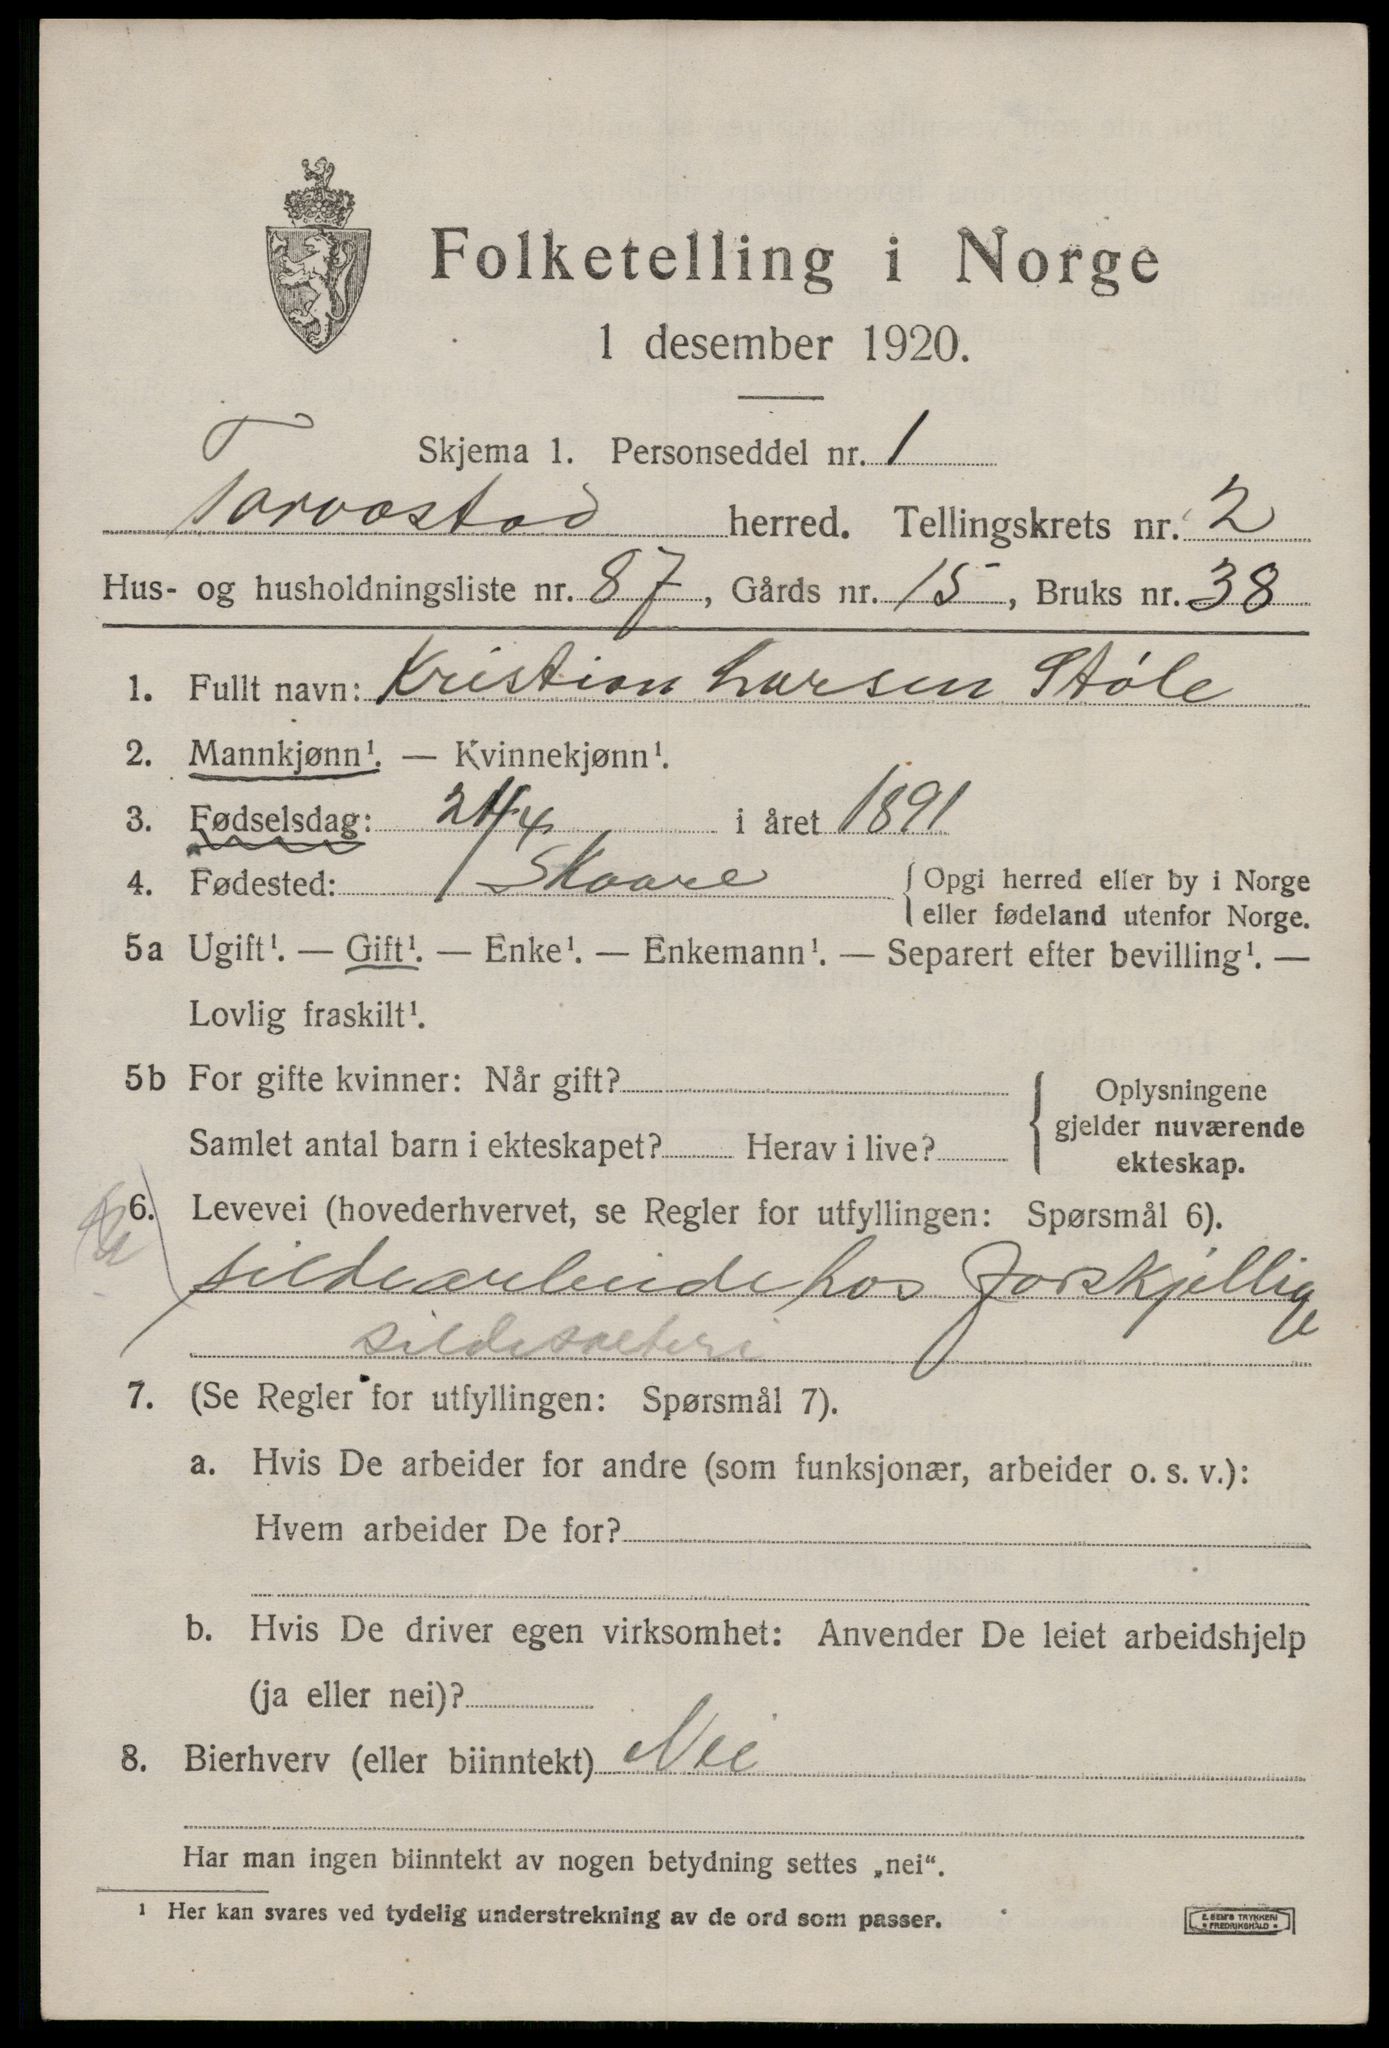 Folketelling i Norge
1 desember 1920.
Skjema 1. Personseddel nr. 1
Torvastad herred. Tellingskrets nr. 2
Hus- og husholdningsliste nr. 87, Gårds nr. 15, Bruks nr. 38
1. Fullt navn: Kristian Larsen Støle
2. Mannkjønn¹. — Kvinnekjønn¹.
3. Fødselsdag: 24/4 i året 1891
4. Fødested: Skaare { Opgi herred eller by i Norge
eller fødeland utenfor Norge.
5a Ugift¹. — Gift¹. — Enke¹. — Enkemann¹. — Separert efter bevilling¹. —
Lovlig fraskilt¹.
5b For gifte kvinner: Når gift? { Oplysningene
gjelder nuværende
Samlet antal barn i ekteskapet? Herav i live? ekteskap.
6. Levevei (hovederhvervet, se Regler for utfyllingen: Spørsmål 6).
sildearbeide hos forskjellige
sildesalteri
7. (Se Regler for utfyllingen: Spørsmål 7).
a. Hvis De arbeider for andre (som funksjonær, arbeider o. s. v.):
Hvem arbeider De for?
b. Hvis De driver egen virksomhet: Anvender De leiet arbeidshjelp
(ja eller nei)?
8. Bierhverv (eller biinntekt) Nei
Har man ingen biinntekt av nogen betydning settes „nei“.
¹ Her kan svares ved tydelig understrekning av de ord som passer.
E. SEM'S TRYKKERI
* FREDRIKSHALD *